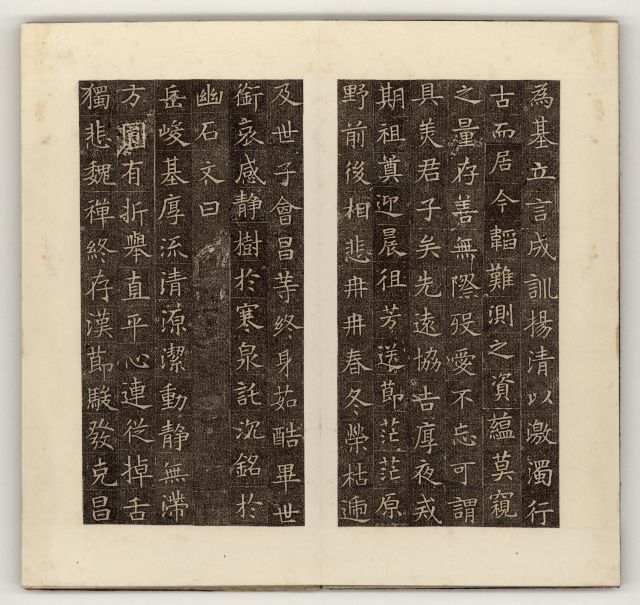 為基立言成訓揚清以激濁行
古而居今韜難測之資蘊莫窺
之量存善無際歿愛不忘可謂
具美君子矣先遠協吉厚夜戒
期祖奠迎晨徂芳送節茫茫原
野前後相悲冉冉春冬榮枯遞
及世子會昌等終身茹酷畢世
銜哀感靜樹於寒泉託沉銘於
幽石文曰
岳峻基厚流清源潔動靜無滯
方圓有折舉直平心連從掉舌
獨悲魏禪終存漢節駿發克昌